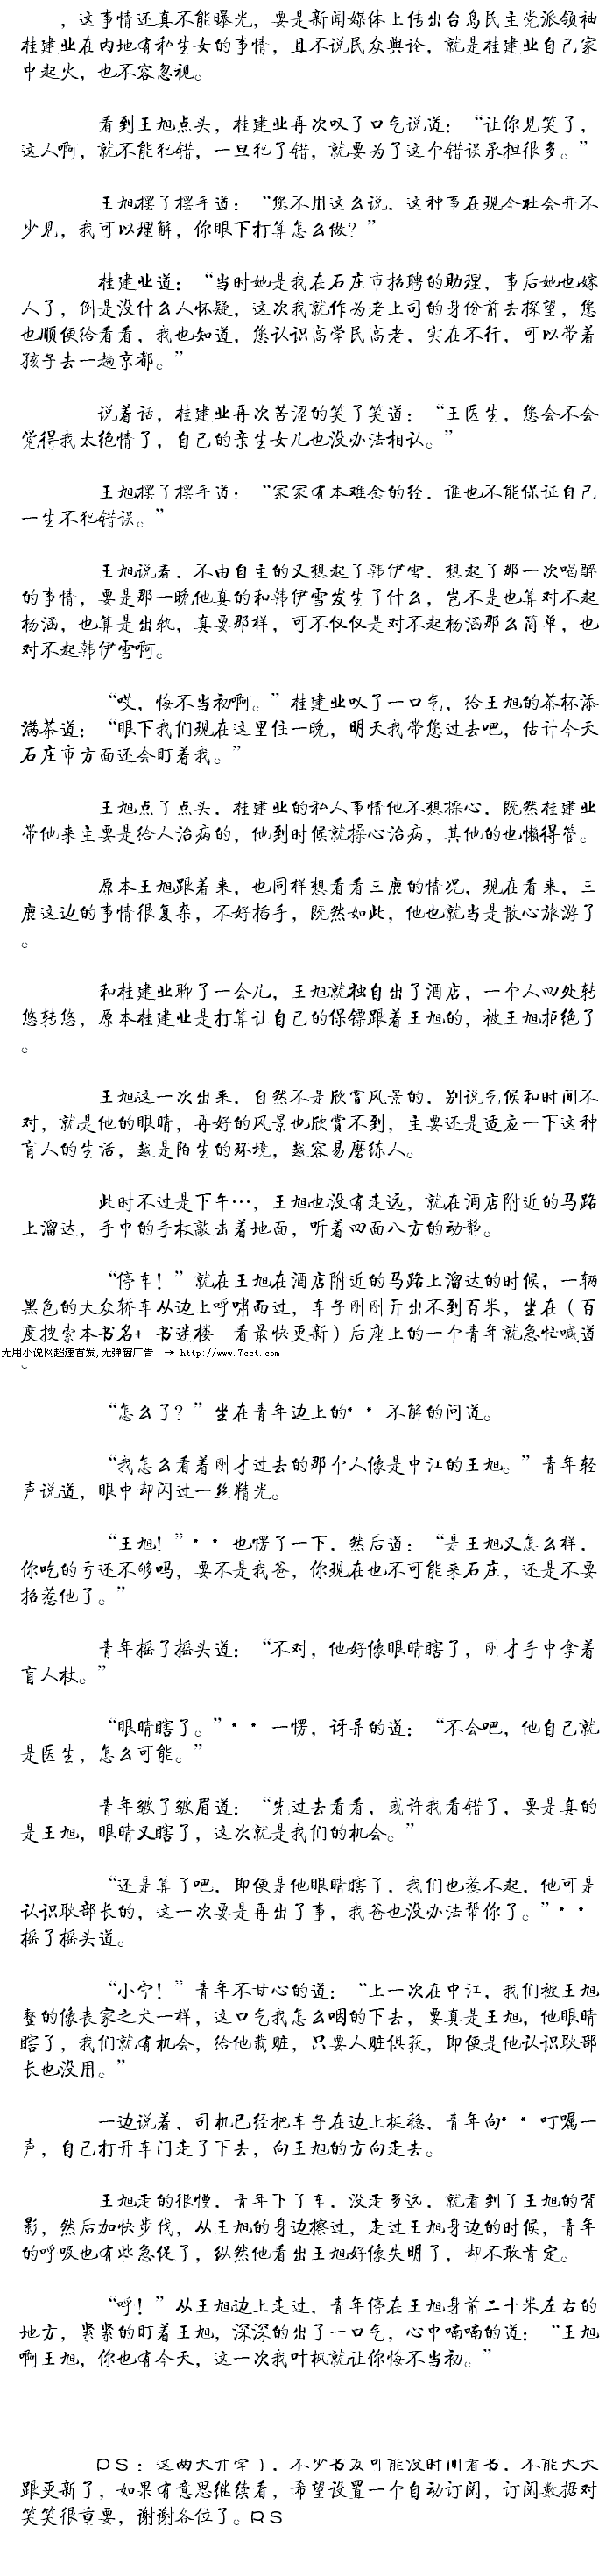 ，这事情还真不能曝光，要是新闻媒体上传出台岛民主党派领袖
桂建业在内地有私生女的事情，且不说民众舆论，就是桂建业自己家
中起火，也不容忽视。
看到王旭点头，桂建业再次叹了口气说道：“让你见笑了，
这人啊，就不能犯错，一旦犯了错，就要为了这个错误承担很多。”
王旭摆了摆手道：“您不用这么说，这种事在现今社会并不
少见，我可以理解，你眼下打算怎么做？”
桂建业道：“当时她是我在石庄市招聘的助理，事后她也嫁
人了，倒是没什么人怀疑，这次我就作为老上司的身份前去探望，您
也顺便给看看，我也知道，您认识高学民高老，实在不行，可以带着
孩子去一趟京都。”
说着话，桂建业再次苦涩的笑了笑道：“王医生，您会不会
觉得我太绝情了，自己的亲生女儿也没办法相认。”
王旭摆了摆手道：“家家有本难念的经，谁也不能保证自己
一生不犯错误。”
王旭说着，不由自主的又想起了韩伊雪，想起了那一次喝醉
的事情，要是那一晚他真的和韩伊雪发生了什么，岂不是也算对不起
杨涵，也算是出轨，真要那样，可不仅仅是对不起杨涵那么简单，也
对不起韩伊雪啊。
“哎，悔不当初啊。”桂建业叹了一口气，给王旭的茶杯添
满茶道：“眼下我们现在这里住一晚，明天我带您过去吧，估计今天
石庄市方面还会盯着我。”
王旭点了点头，桂建业的私人事情他不想操心，既然桂建业
带他来主要是给人治病的，他到时候就操心治病，其他的也懒得管。
原本王旭跟着来，也同样想看看三鹿的情况，现在看来，三
鹿这边的事情很复杂，不好插手，既然如此，他也就当是散心旅游了
。
和桂建业聊了一会儿，王旭就独自出了酒店，一个人四处转
悠转悠，原本桂建业是打算让自己的保镖跟着王旭的，被王旭拒绝了
。
王旭这一次出来，自然不是欣赏风景的，别说气候和时间不
对，就是他的眼睛，再好的风景也欣赏不到，主要还是适应一下这种
盲人的生活，越是陌生的环境，越容易磨练人。
此时不过是下午…，王旭也没有走远，就在酒店附近的马路
上溜达，手中的手杖敲击着地面，听着四面八方的动静。
“停车！”就在王旭在酒店附近的马路上溜达的时候，一辆
黑色的大众轿车从边上呼啸而过，车子刚刚开出不到百米，坐在（百
度搜索本书名+ 书迷楼 看最快更新）后座上的一个青年就急忙喊道
无用小说网超速首发,无弹窗广告 → http://www.7cct.com
。
“怎么了？”坐在青年边上的··不解的问道。
“我怎么看着刚才过去的那个人像是中江的王旭。”青年轻
声说道，眼中却闪过一丝精光。
“王旭！”··也愣了一下，然后道：“是王旭又怎么样，
你吃的亏还不够吗，要不是我爸，你现在也不可能来石庄，还是不要
招惹他了。”
青年摇了摇头道：“不对，他好像眼睛瞎了，刚才手中拿着
盲人杖。”
“眼睛瞎了。”··一愣，讶异的道：“不会吧，他自己就
是医生，怎么可能。”
青年皱了皱眉道：“先过去看看，或许我看错了，要是真的
是王旭，眼睛又瞎了，这次就是我们的机会。”
“还是算了吧，即便是他眼睛瞎了，我们也惹不起，他可是
认识耿部长的，这一次要是再出了事，我爸也没办法帮你了。”··
摇了摇头道。
“小宁！”青年不甘心的道：“上一次在中江，我们被王旭
整的像丧家之犬一样，这口气我怎么咽的下去，要真是王旭，他眼睛
瞎了，我们就有机会，给他栽赃，只要人赃俱获，即便是他认识耿部
长也没用。”
一边说着，司机已经把车子在边上挺稳，青年向··叮嘱一
声，自己打开车门走了下去，向王旭的方向走去。
王旭走的很慢，青年下了车，没走多远，就看到了王旭的背
影，然后加快步伐，从王旭的身边擦过，走过王旭身边的时候，青年
的呼吸也有些急促了，纵然他看出王旭好像失明了，却不敢肯定。
“呼！”从王旭边上走过，青年停在王旭身前二十米左右的
地方，紧紧的盯着王旭，深深的出了一口气，心中喃喃的道：“王旭
啊王旭，你也有今天，这一次我叶枫就让你悔不当初。”
PS：这两天开学了，不少书友可能没时间看书，不能天天
跟更新了，如果有意思继续看，希望设置一个自动订阅，订阅数据对
笑笑很重要，谢谢各位了。RS